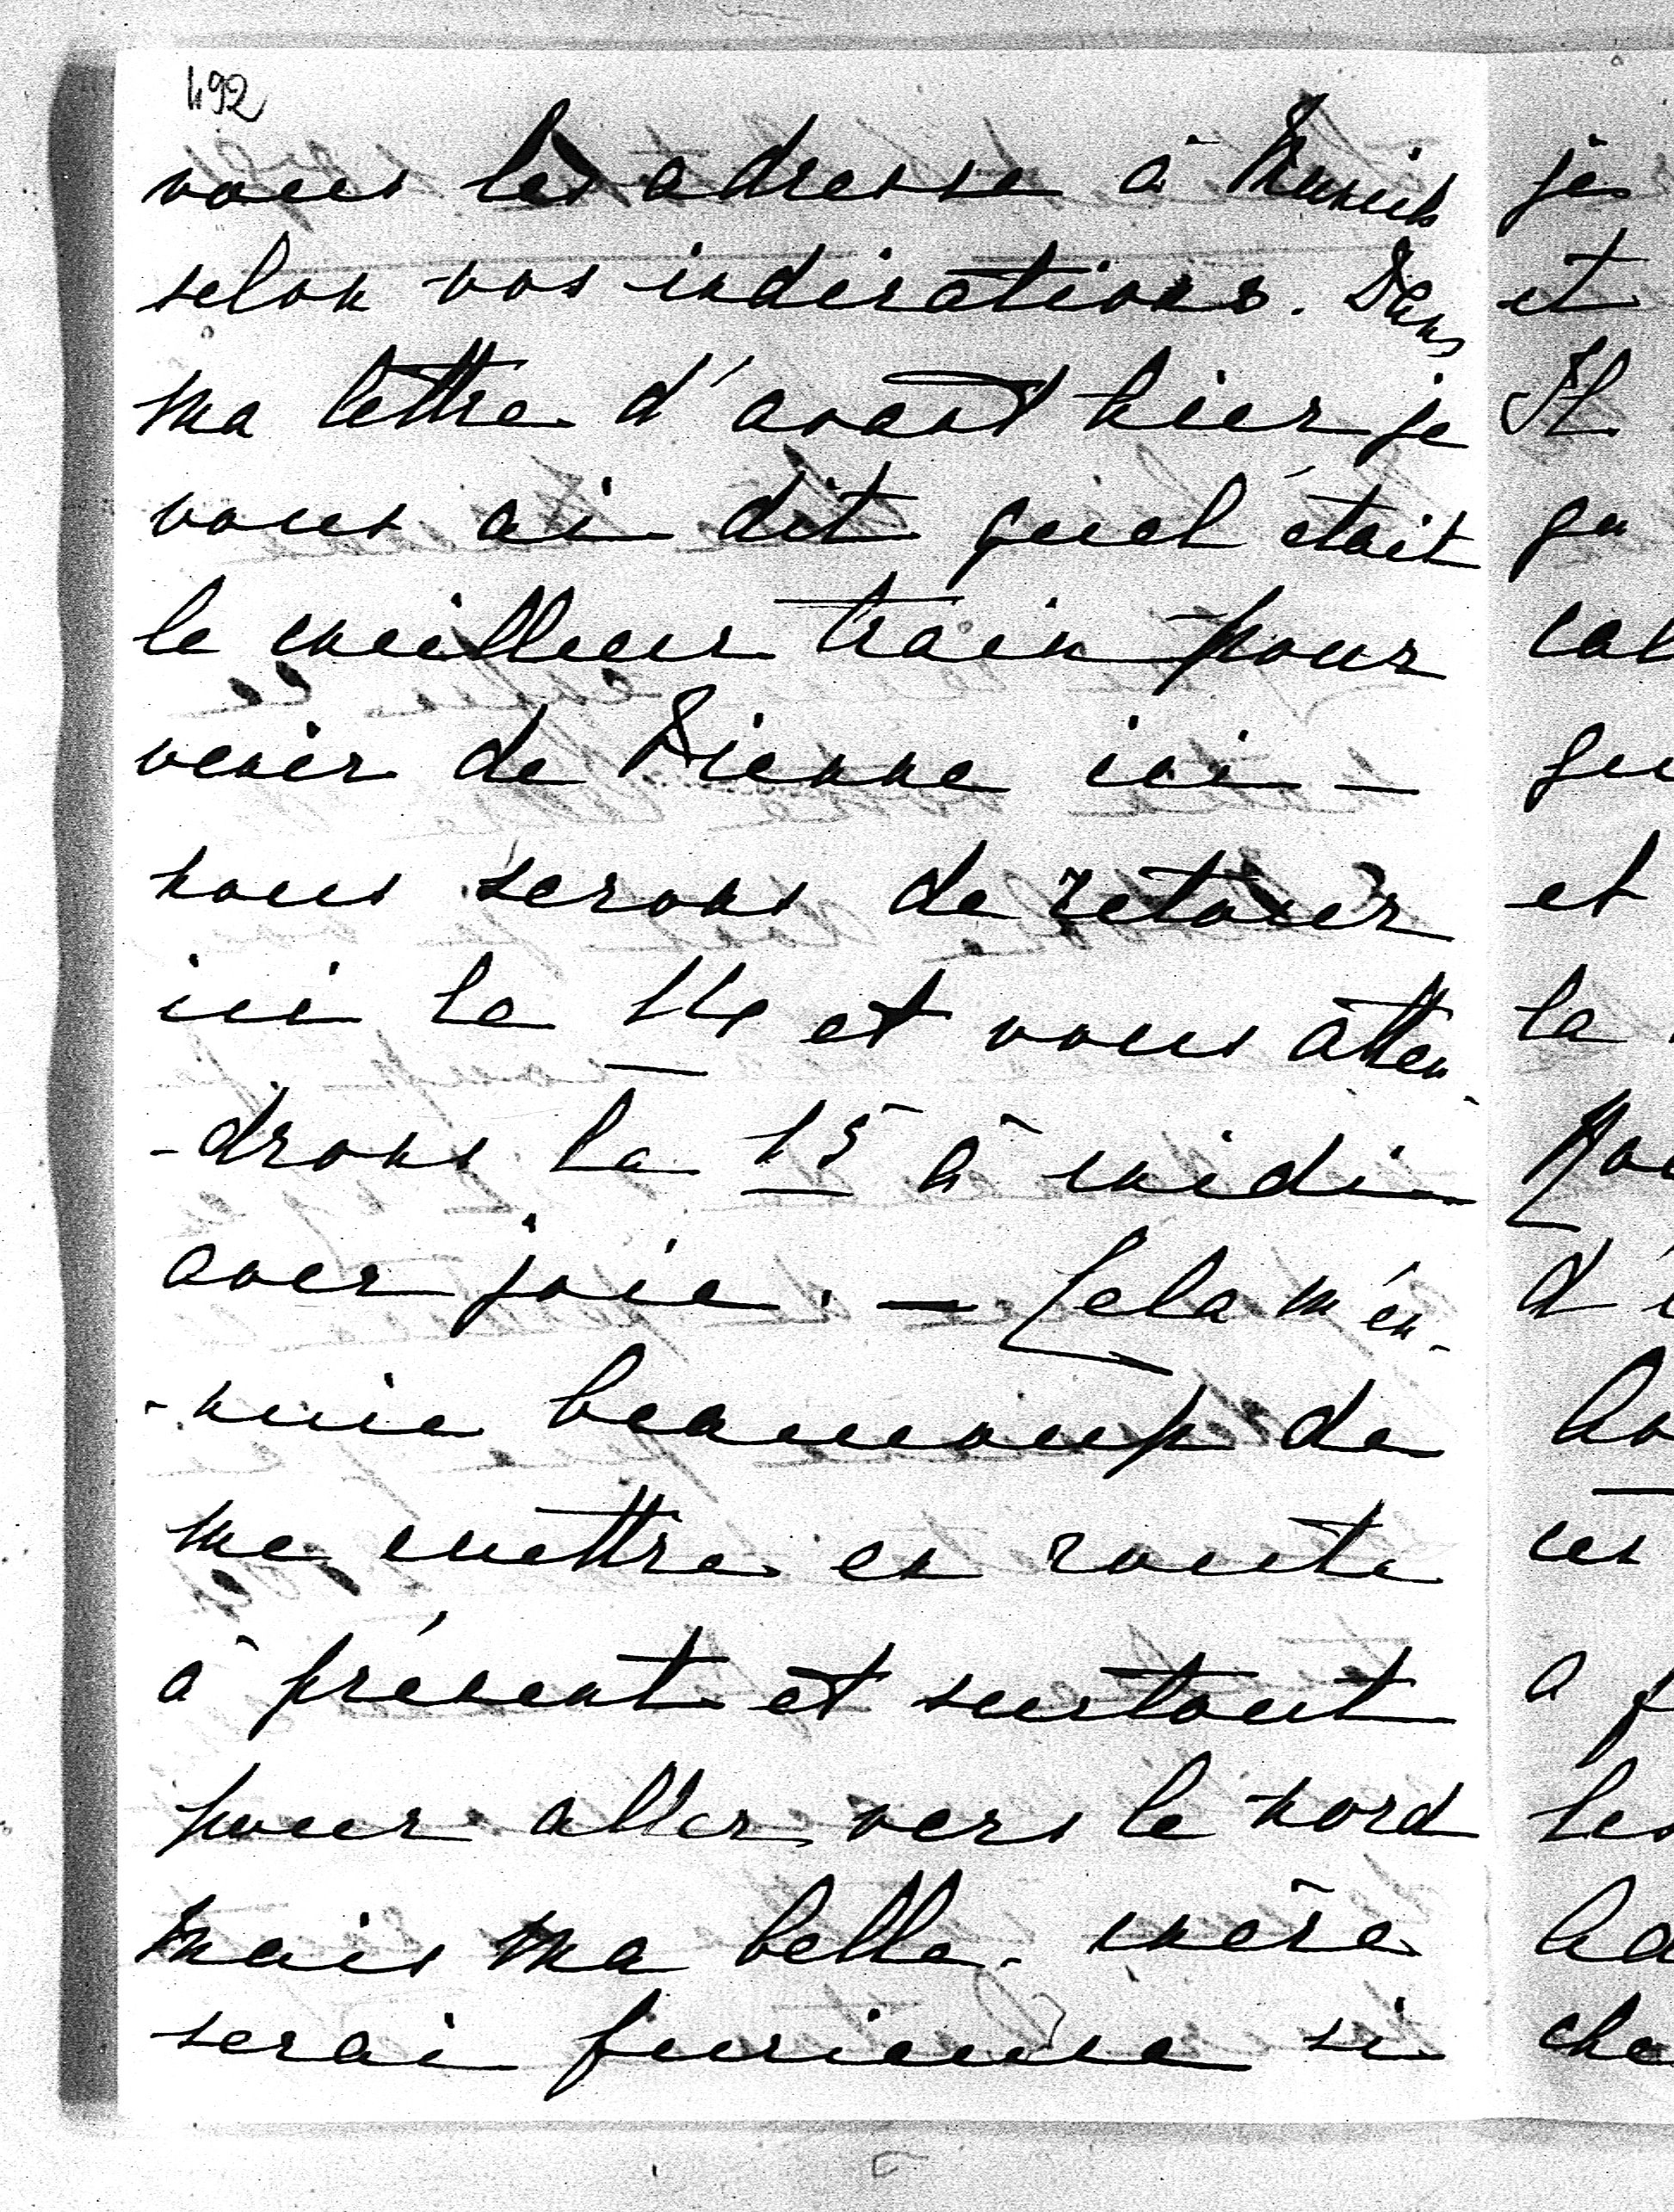 492
vous les adresse à Munich
selon vos indications. Dans
ma lettre d'avant hier je
vous ai dit quel était
le meilleur train pour
venir de Vienne ici –
nous serons de retour
ici le 14 et vous atten-
-drons le 15 à midi
avec joie. – Cela m'en-
-nuie beaucoup de
me mettre en route
à présent et surtout
pour aller vers le nord
mais ma belle-mère
serai furieuse si
je
et
Il
qu
cal
qu
et
le
d'
ho
ces
a
les
ha
che